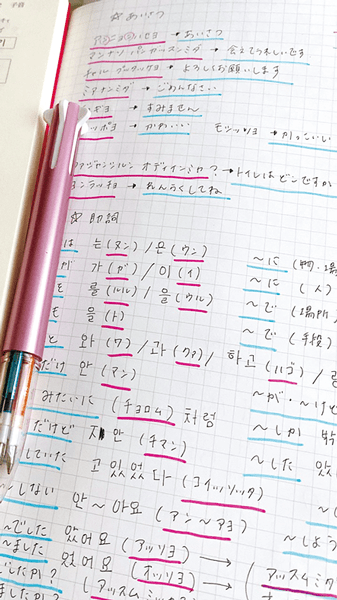 ☆ あいさつ
→ あいさつ
マンナソ パンガッスンミダ → 会えてうれしいです
チャル ブータッケヨ → よろしくお願いします
ミアナンミダ → ごめんなさい
→ すみません
ッポヨ → かわ・・・ モシッソヨ → かっこいい
ファジャンシルン オディインミカ? → トイレはどこですか
ヨンラッチョ → れんらくしてね
☆ 助詞
は 는 (ヌン) / 은 (ウン) ~に (物・場
が 가 (ガ) / 이 (イ) ~に (人)
を 를 (ルル) / 을 (ウル) ~で (場所
も (ト) ~で (手段)
と 와 (ワ) / 과 (クァ) / 하고 (ハゴ) /
だけ 만 (マン) ~が・~けど
みたいに (チョロム) 처럼 ~しか 밖
だけど 지만 (チマン) ~した 았
していた 고 있었다 (コイッソッタ)
~しない 안 ~ 아요 (アン~アヨ) ~しよう
~でした 았어요 (アッソヨ) →
~ました 었어요 (オッソヨ) → (アッスムミダ
でしたか? (アッスムミ
ましたか?